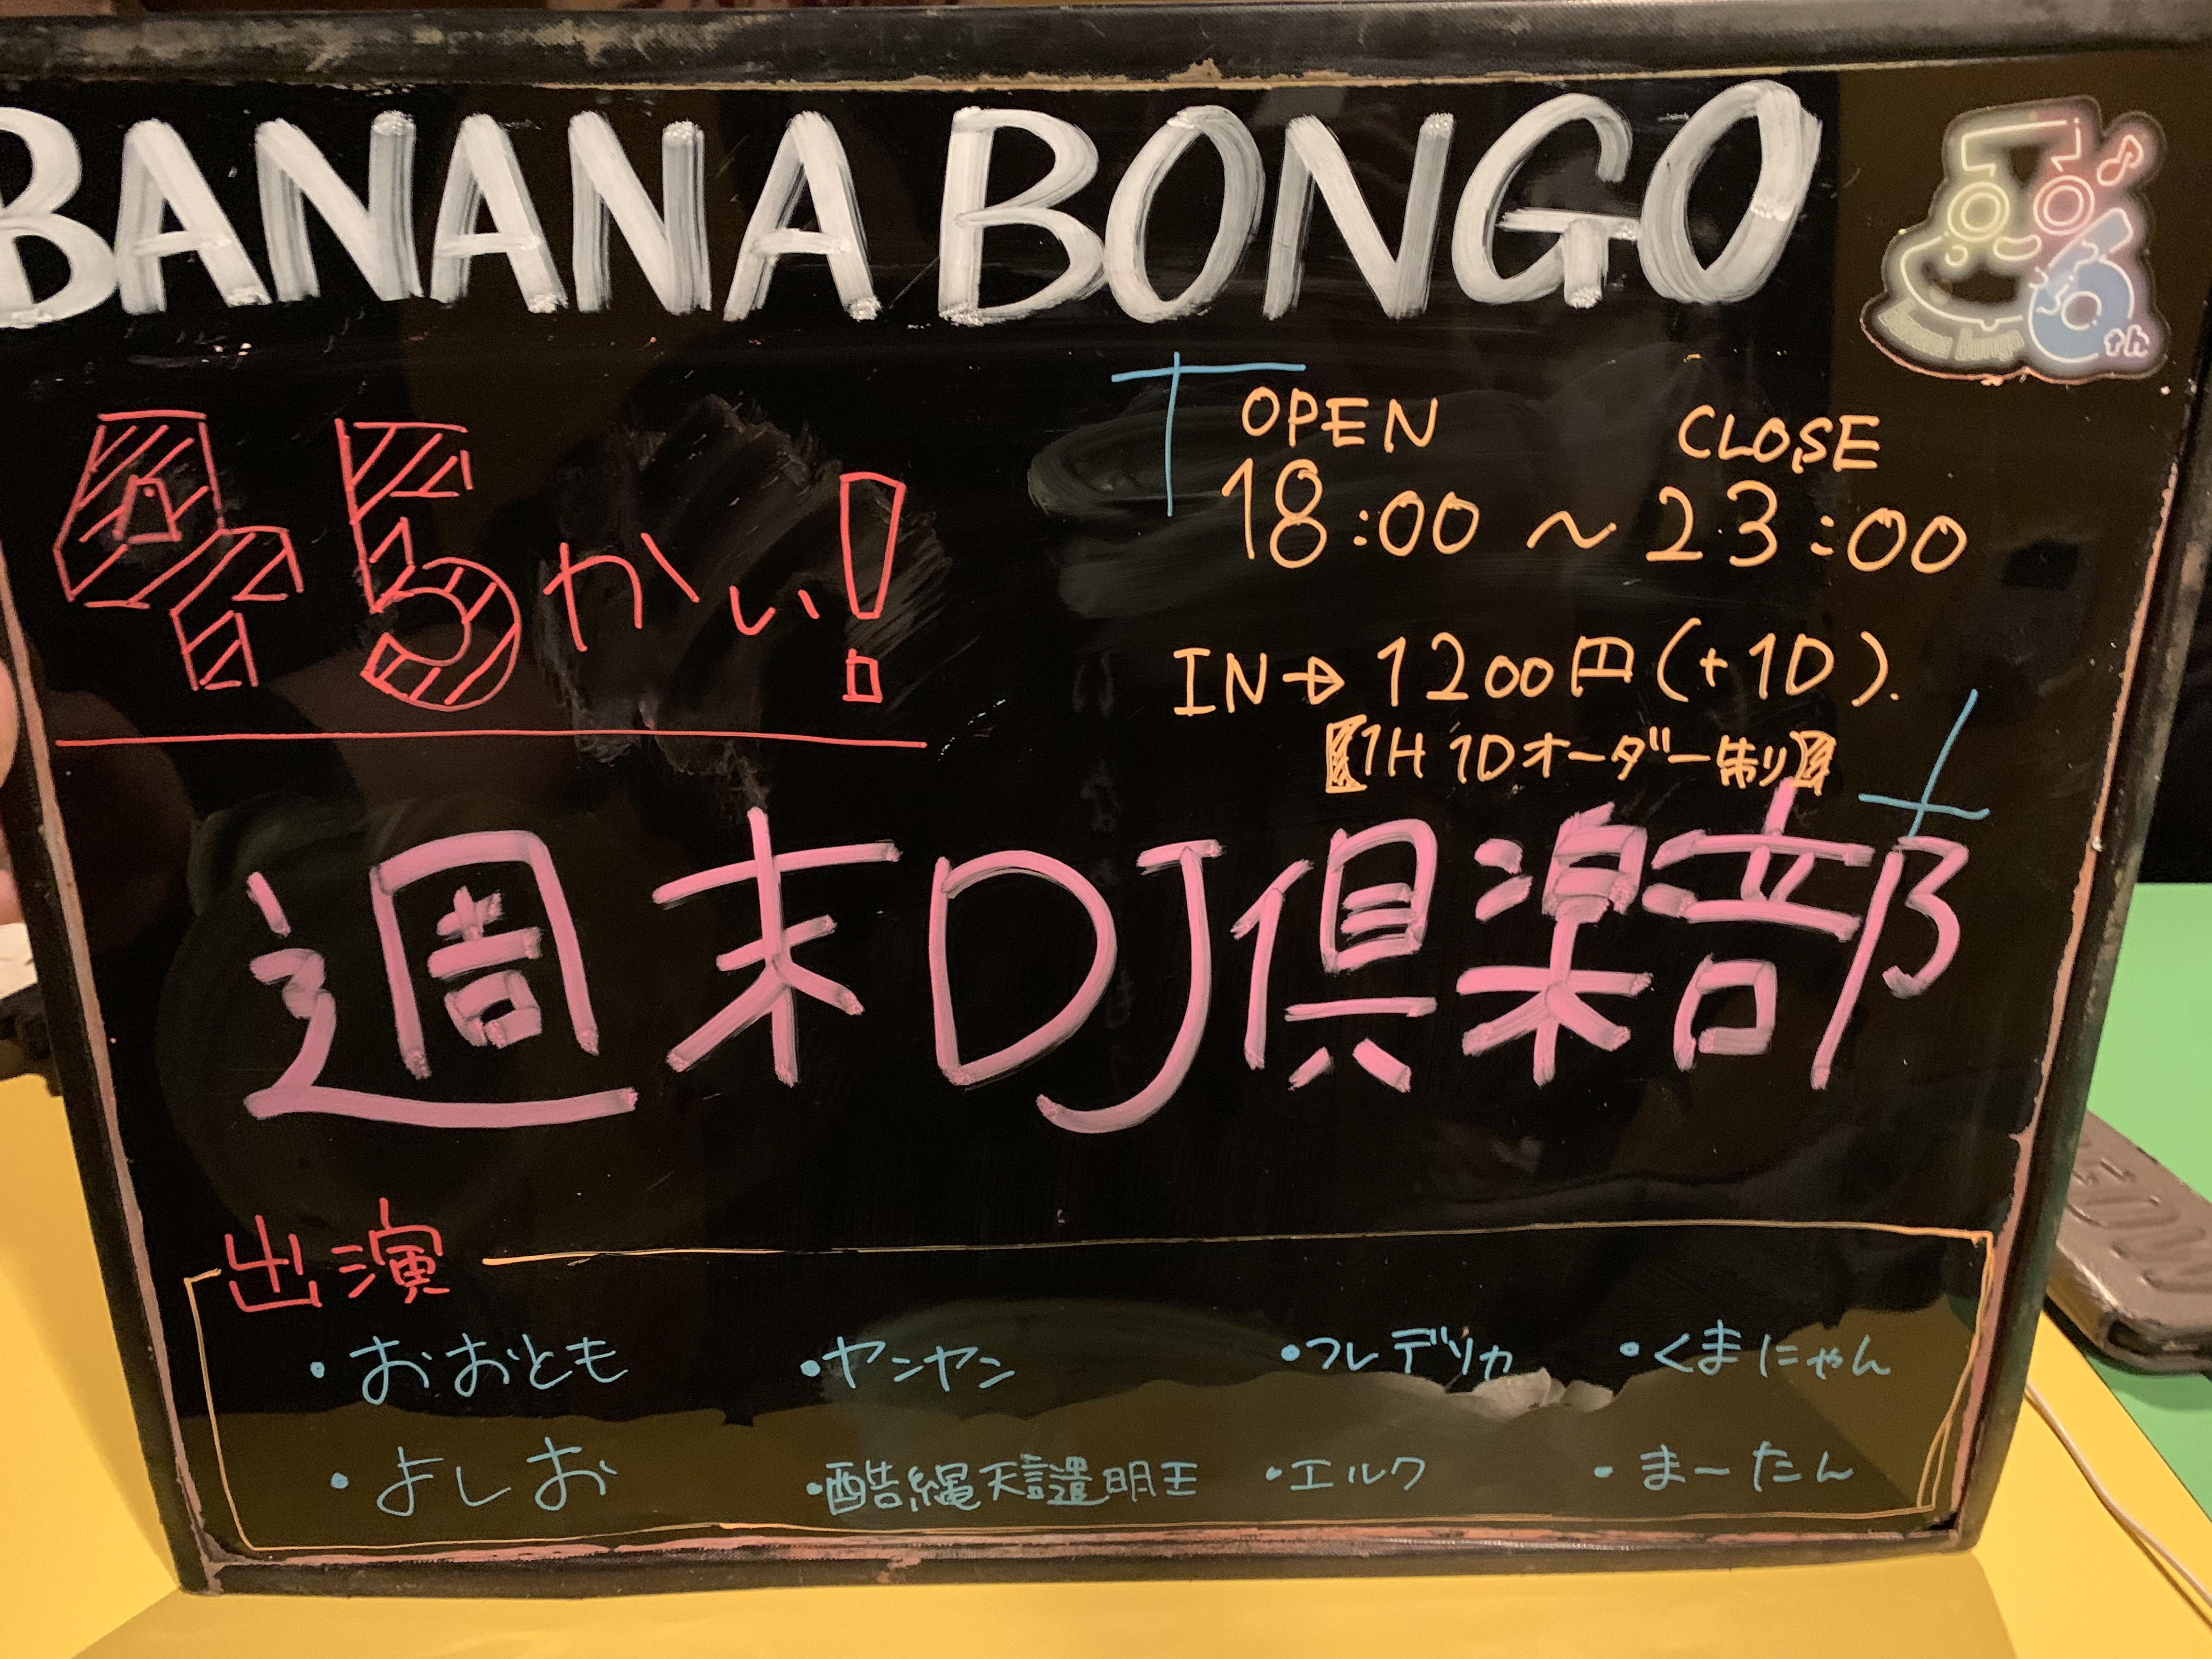 BANANA BONGO
Banana Bongo
6th
45かい!
OPEN CLOSE
18:00 ~ 23:00
IN→1200円(+1D).
【1H 1Dオーダー制】
週末DJ倶楽部
出演
・おおとも ・ヤンヤン ・フレデリカ ・くまにゃん
・よしお ・酷縄天譴明王 ・エルク ・まーたん